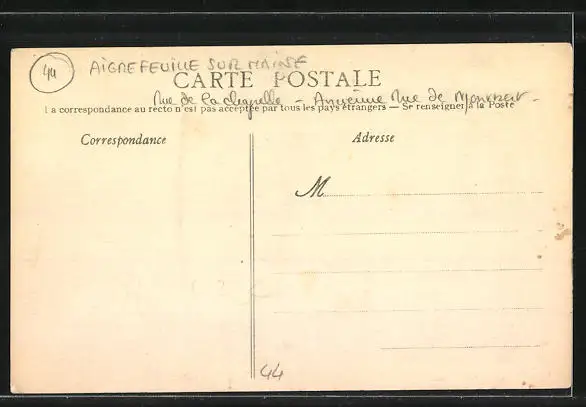 44 AIGREFEUILLE SUR MAINE
CARTE POSTALE
Rue de la - Ancienne Rue de
La correspondance au recto n'est pas acceptée par tous les pays étrangers — Se renseigner à la Poste
Correspondance
Adresse
M
44